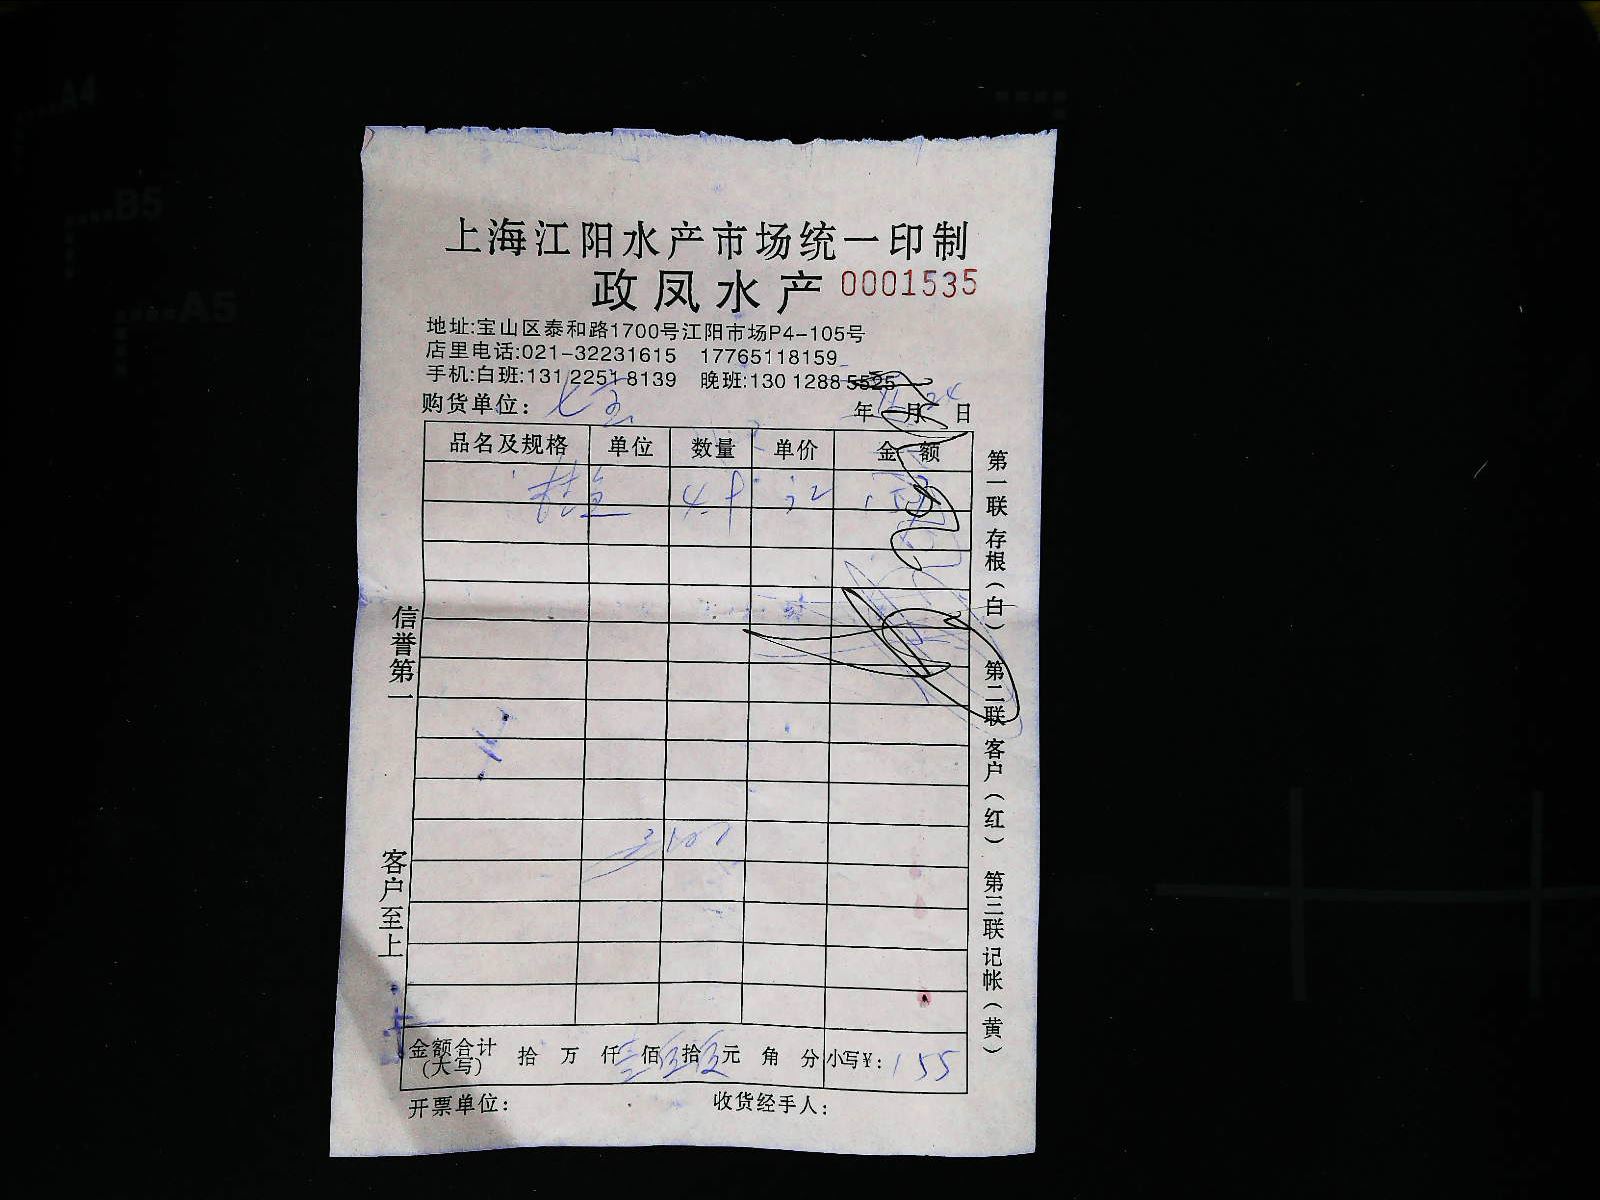 上海江阳水产市场统一印制
政凤水产 0001535
地址:宝山区泰和路1700号江阳市场P4-105号
店里电话:021-32231615 17765118159
手机:白班:131 2251 8139 晚班:130 1288 5525
购货单位: 七宝 年 月 24 日
品名及规格 单位 数量 单价 金额
桂鱼 32
信誉第一
客户至上
第一联 存根(白) 第二联 客户(红) 第三联 记帐(黄)
金额合计 拾 万 仟 壹 佰 伍 拾 伍 元 角 分 小写¥: 155
(大写)
开票单位: 收货经手人:
A4
B5
A5